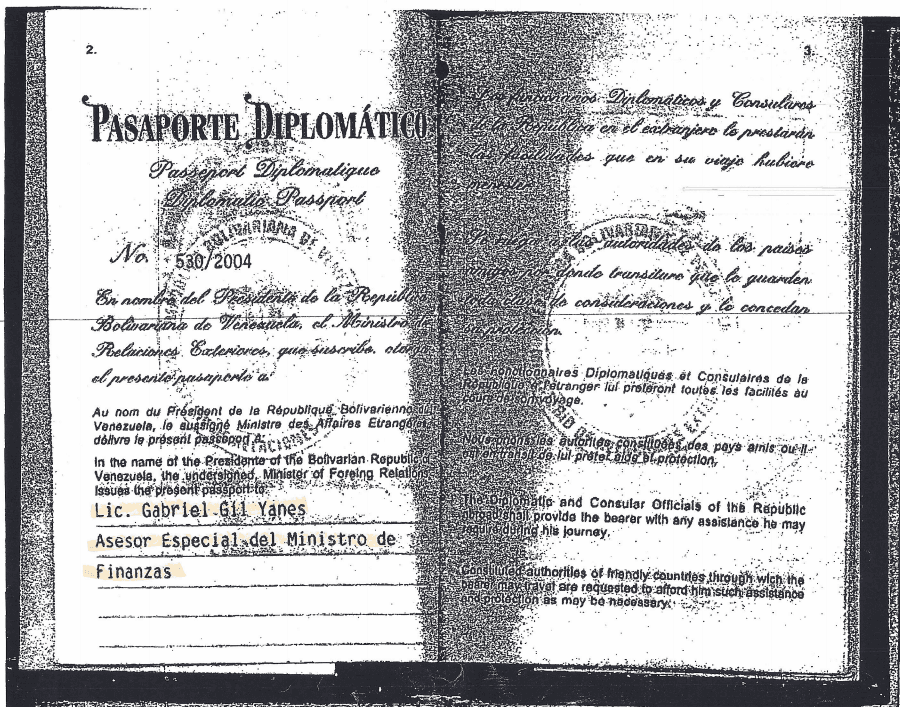 2.
PASAPORTE DIPLOMÁTICO
Passeport Diplomatique
Diplomatic Passport
No. 530/2004
En nombre del Presidente de la República
Bolivariana de Venezuela, el Ministro de
Relaciones Exteriores, que suscribe, otorga
el presente pasaporte a:
Au nom du Président de la République Bolivarienne du
Venezuela, le Ministre des Affaires Etrangéres
délivre le présent passeport A:
In the name of the Presidente of the Bolivarian Republic
Venezuela, the undersigned, Minister of Foreing Relations
issues the present passport to:
Lic. Gabriel Gil Yanes
Asesor Especial del Ministro de
Finanzas
3.
Los funcionarios Diplomáticos y Consulares
de la República en el extranjero le prestarán
las facilidades que en su viaje hubiere
menester.
autoridades de los países
amigos por donde transitare que le guarden
toda clase de consideraciones y le concedan
su protección.
Les Fonctionnaires Diplomatiques et Consulaires de la
République a l'etranger lui préteront toutes les facilités au
cours de son voyage.
Nous prions les autorites constituées des pays amis ou il
est en transit de lui préter aide et protection.
The Diplomatic and Consular Officials of the Republic
abroad shall provide the bearer with any assistance he may
require during his journey.
Constituted authorities of friendly countries through wich the
bearer may travel are requested to afford him such assistance
and protection as may be necessary.
BOLIVARIANA DE